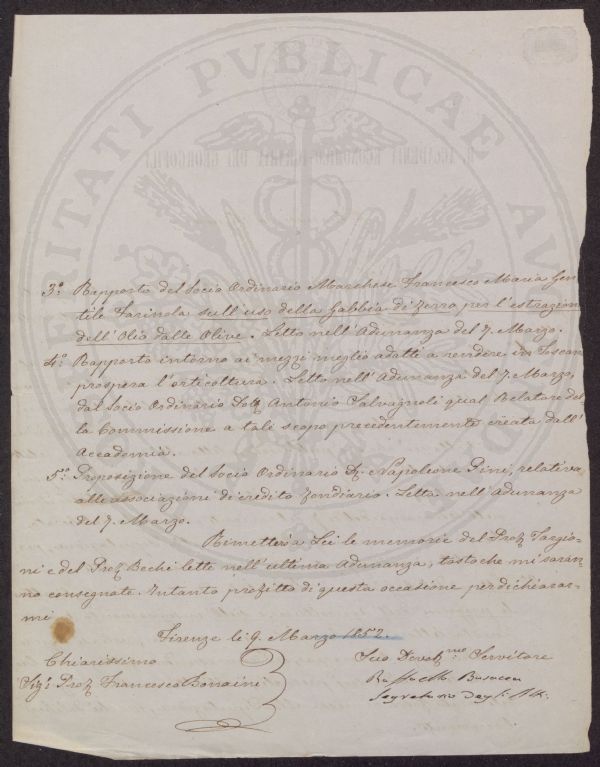 PROSPERITATI PVBLICAE AVGENDAE
R. ACCADEMIA ECONOMICO-AGRARIA DEI GEORGOFILI
3.° Rapporto del Socio Ordinario Marchese Francesco Maria Gen=
tile Farinola sull'uso della Gabbia di ferro per l'estrazione
dell'Olio dalle Olive. Letto nell'Adunanza del 7. Marzo.
4.° Rapporto intorno ai mezzi meglio adatti a rendere in Toscana
prospera l'orticoltura. Letto nell'Adunanza del 7. Marzo,
dal Socio Ordinario Dott. Antonio Salvagnoli qual Relatore del
la Commissione a tale scopo precedentemente creata dall'
Accademia.
5.° Proposizione del Socio Ordinario D. Napoleone Pini, relativa
alle associazioni di credito fondiario. Letta nell'Adunanza
del 7. Marzo.
Rimetterò a Lei le memorie del Prof. Targio=
ni e del Prof. Bechi lette nell'ultima Adunanza, tosto che mi saran=
no consegnate. Intanto profitto di questa occasione per dichiarar=
mi
Firenze li 9. Marzo 1852.
Chiarissimo
Sig.r Prof. Francesco Bonaini
Suo Devot.mo Servitore
Raffaello Busacca
Segretario degli Atti.